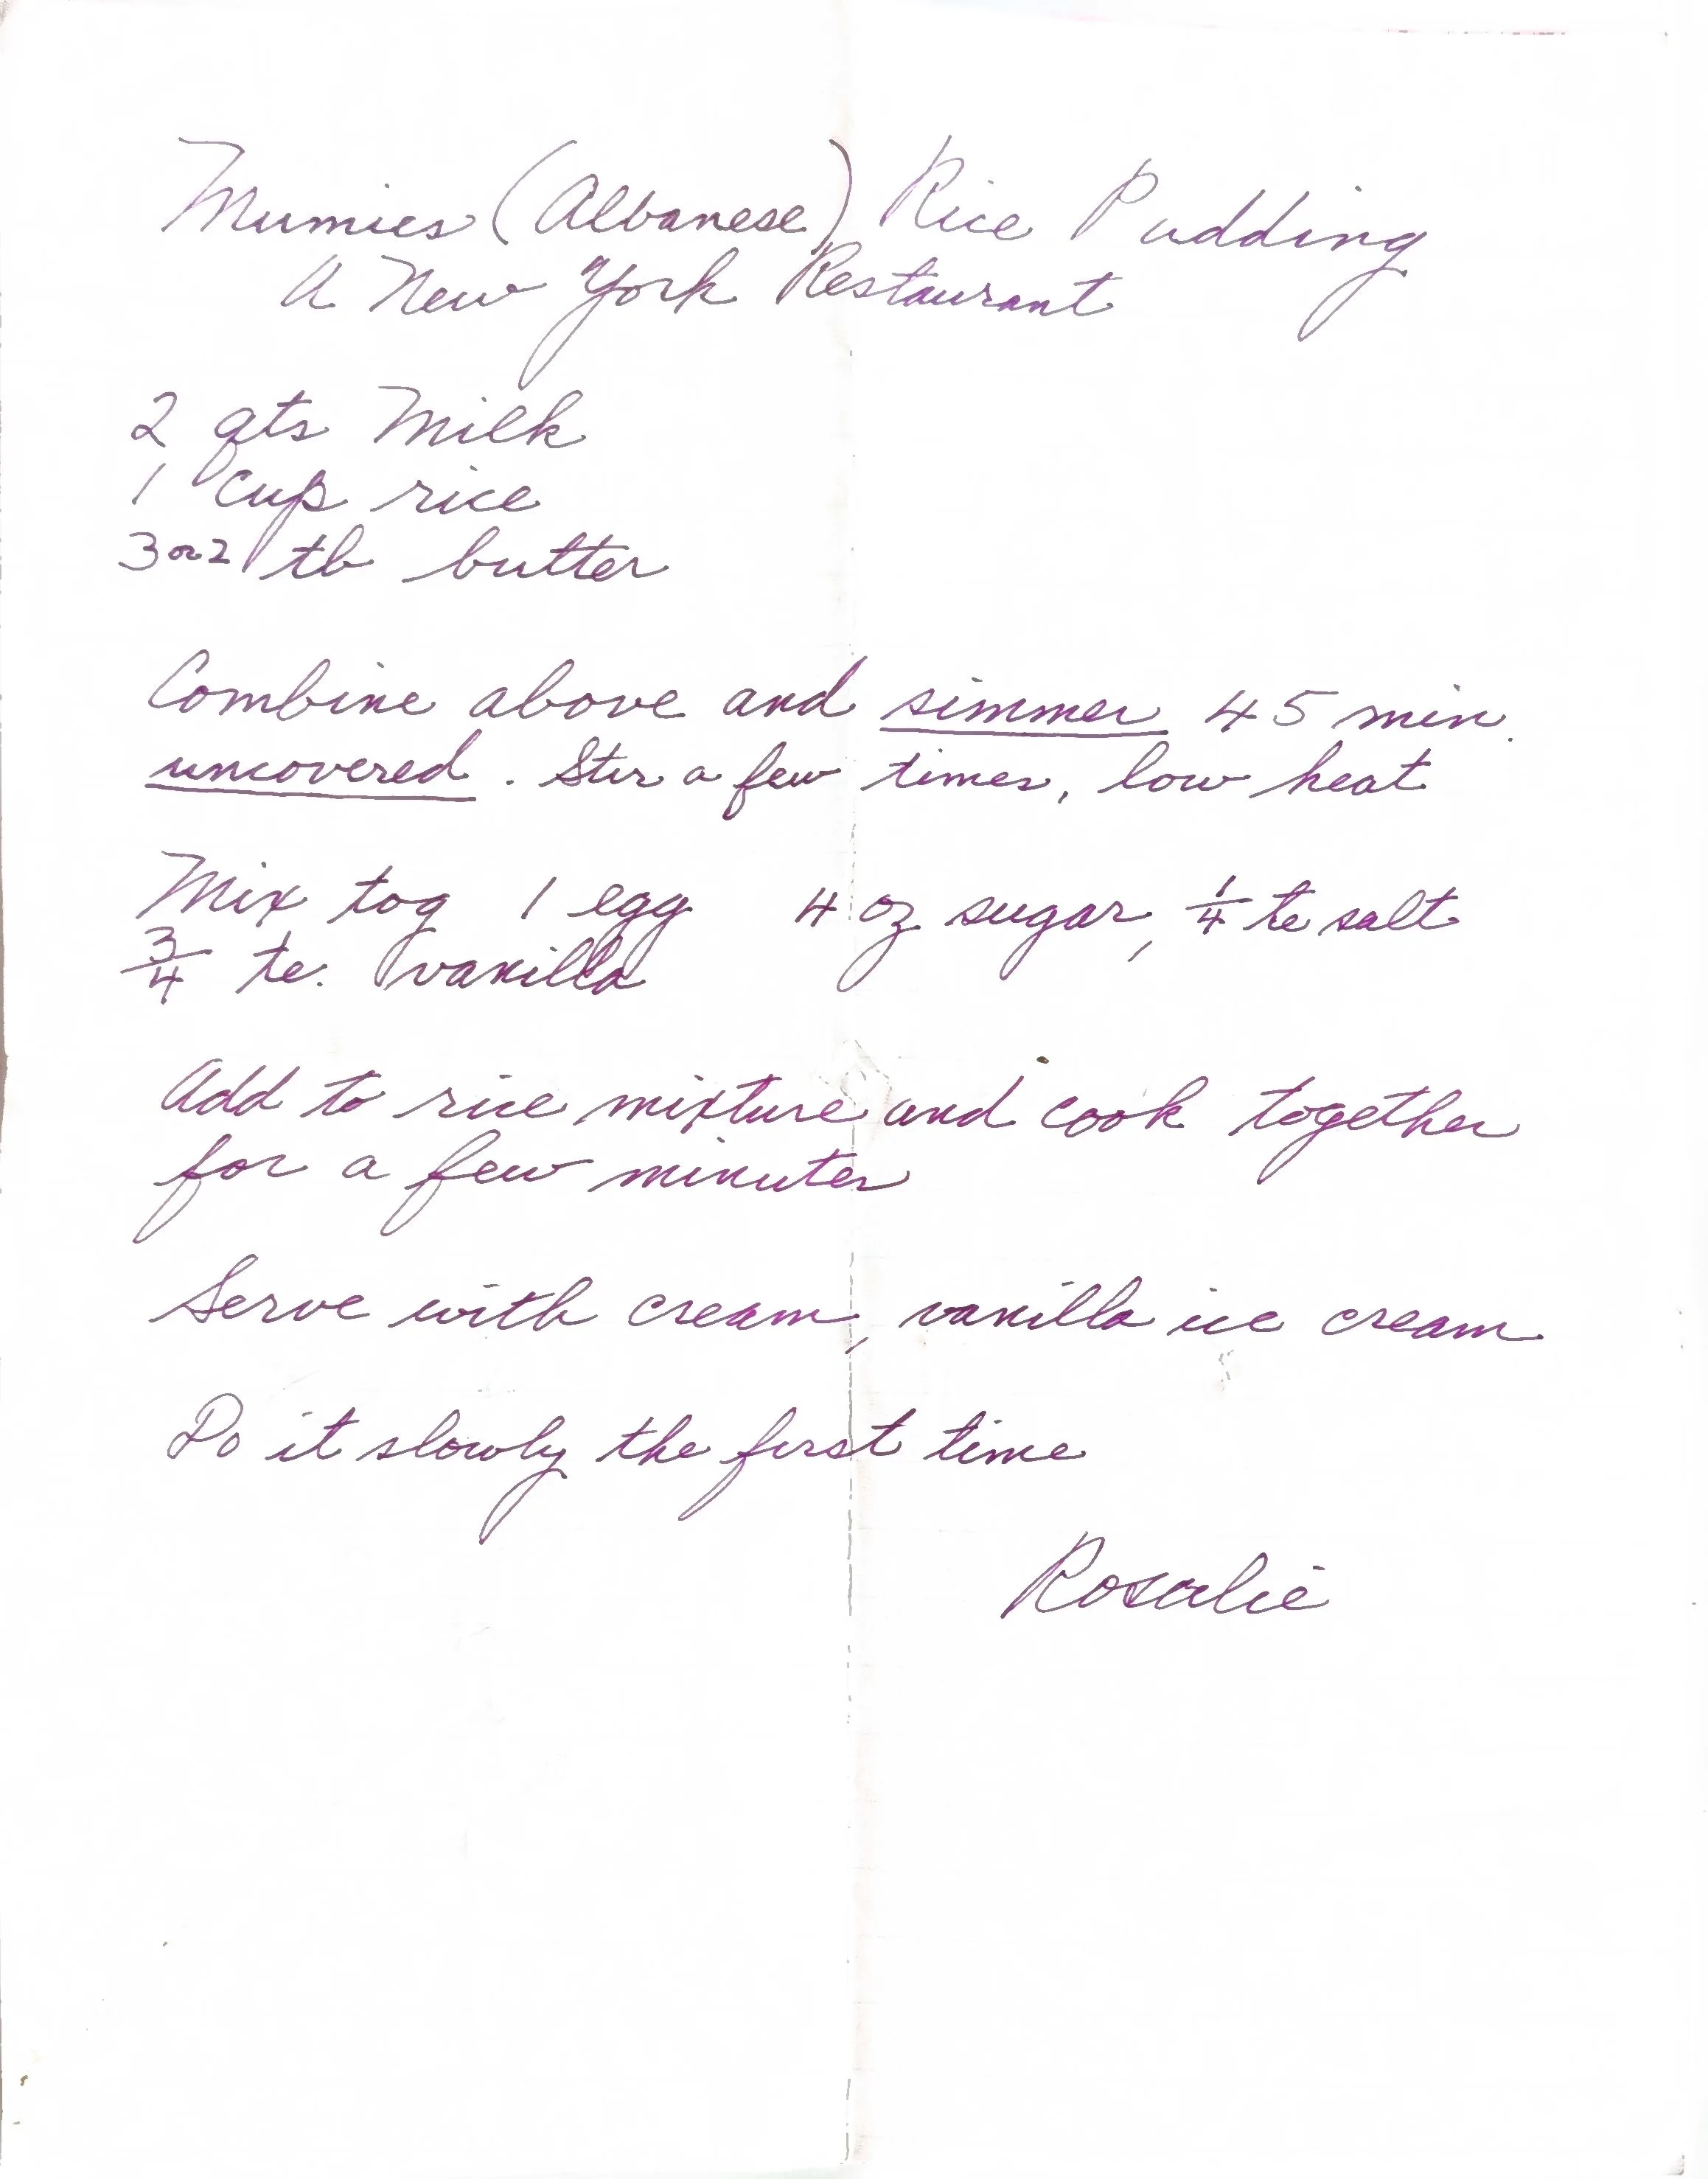 Mumies (Albanese) Rice Pudding
A New York Restaurant
2 qts Milk
1 cup rice
3 or 2 tb butter
Combine above and simmer 45 min.
uncovered. Stir a few times, low heat
Mix tog 1 egg 4 oz sugar, 1/4 te salt
3/4 te. vanilla
Add to rice mixture and cook together
for a few minutes
Serve with cream, vanilla ice cream
Do it slowly the first time
Rosalie